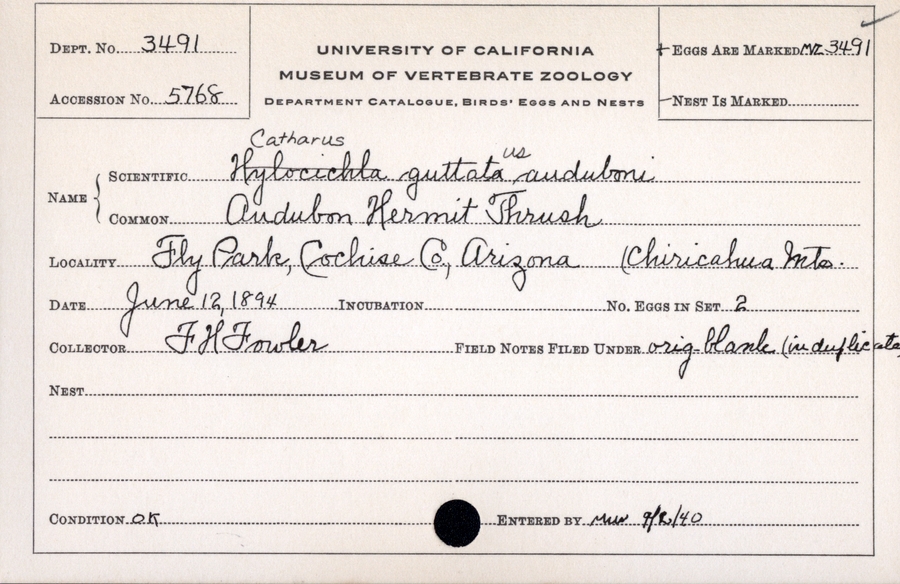 Dept. No. 3491
Accession No. 5768
UNIVERSITY OF CALIFORNIA
MUSEUM OF VERTEBRATE ZOOLOGY
Department Catalogue, Birds' Eggs and Nests
+ Eggs Are Marked MVZ 3491
Nest Is Marked
Catharus
Name Scientific Hylocichla guttata us auduboni
Common Audubon Hermit Thrush
Locality Fly Park, Cochise Co, Arizona (Chiricahua Mts.
Date June 12, 1894 Incubation No. Eggs in Set 2
Collector F H Fowler Field Notes Filed Under orig. blank (in duplicate)
Nest
Condition OK Entered by 40